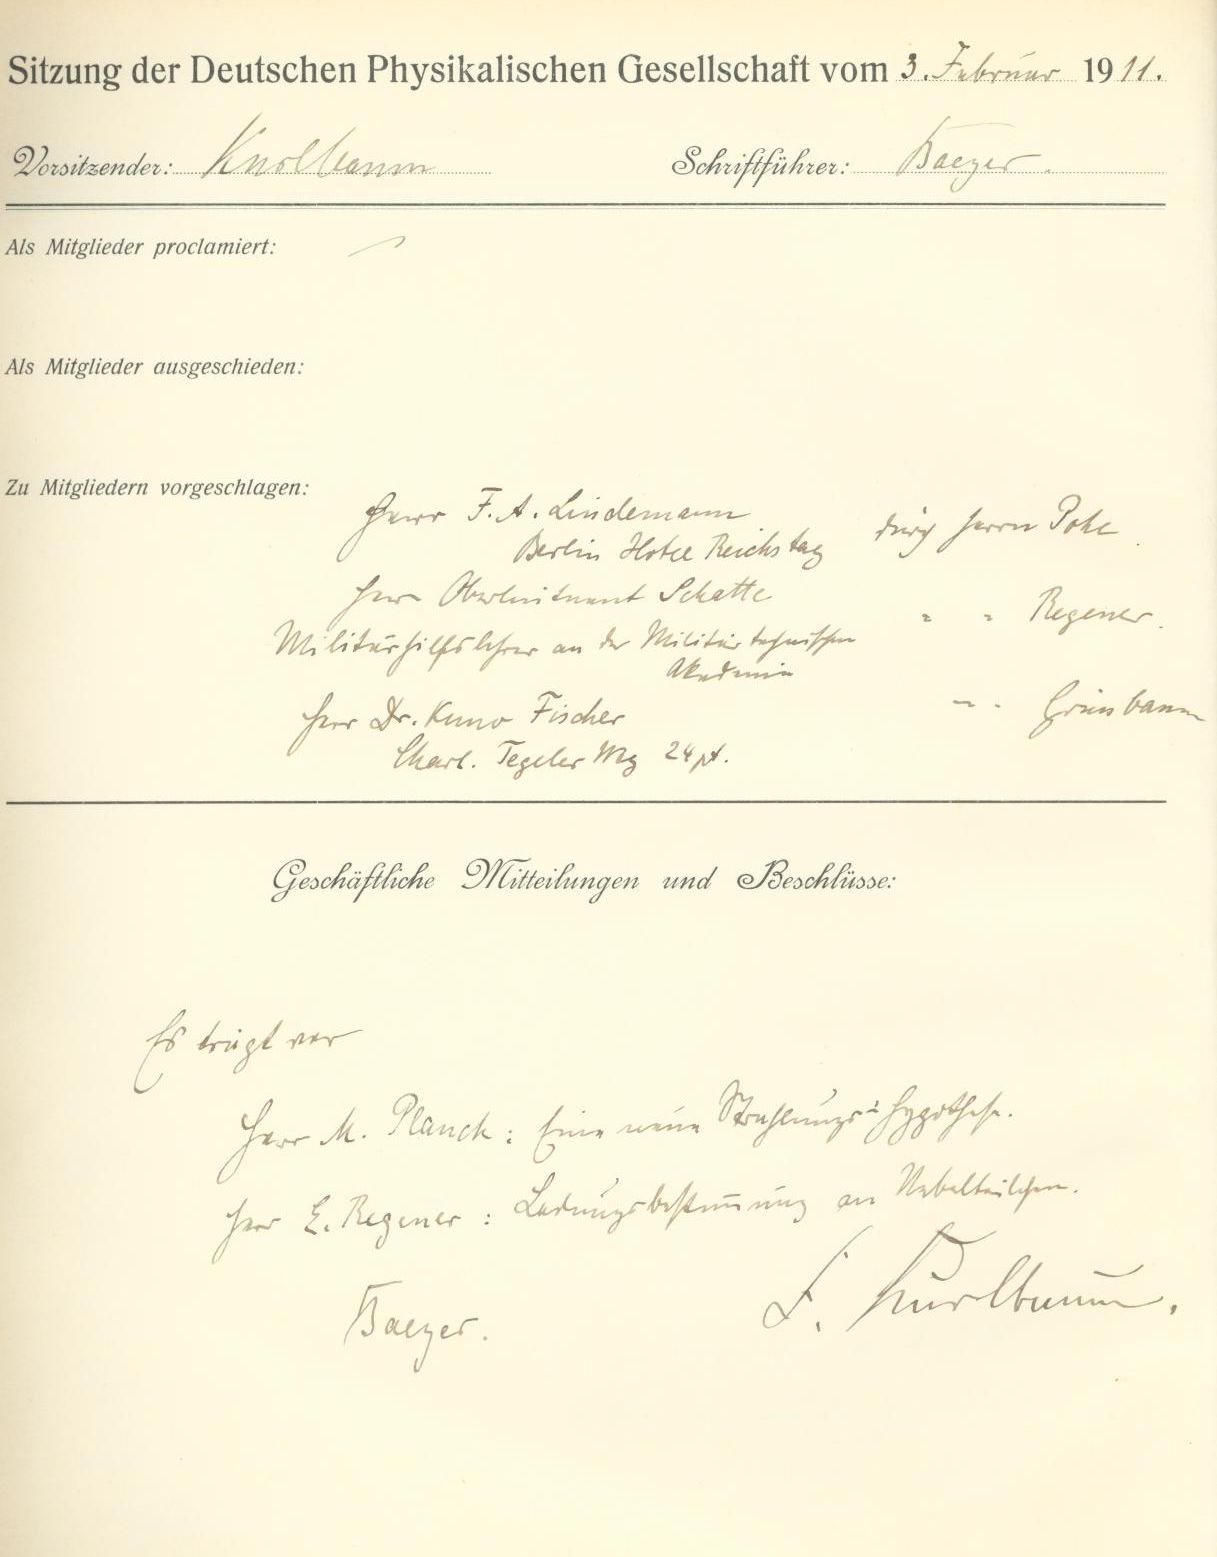 Sitzung der Deutschen Physikalischen Gesellschaft vom 3. Februar 1911.
Vorsitzender: Kurlbaum Schriftführer: Baeyer.
Als Mitglieder proclamiert:
Als Mitglieder ausgeschieden:
Zu Mitgliedern vorgeschlagen:
Herr F. A. Lindemann durch Herrn Pohl
Berlin Hotel Reichstag
Herr Oberleutnant Schatte " " Regener.
Militärhilfslehrer an der Militärtechnischen
Akademie
Herr Dr. Kuno Fischer " " Grünbaum
Charl. Tegeler Weg 24 pt.
Geschäftliche Mitteilungen und Beschlüsse:
Es trägt vor
Herr M. Planck: Eine neue Strahlungs-Hypothese.
Herr E. Regener: Ladungsbestimmung an Nebelteilchen.
F. Kurlbaum.
Baeyer.